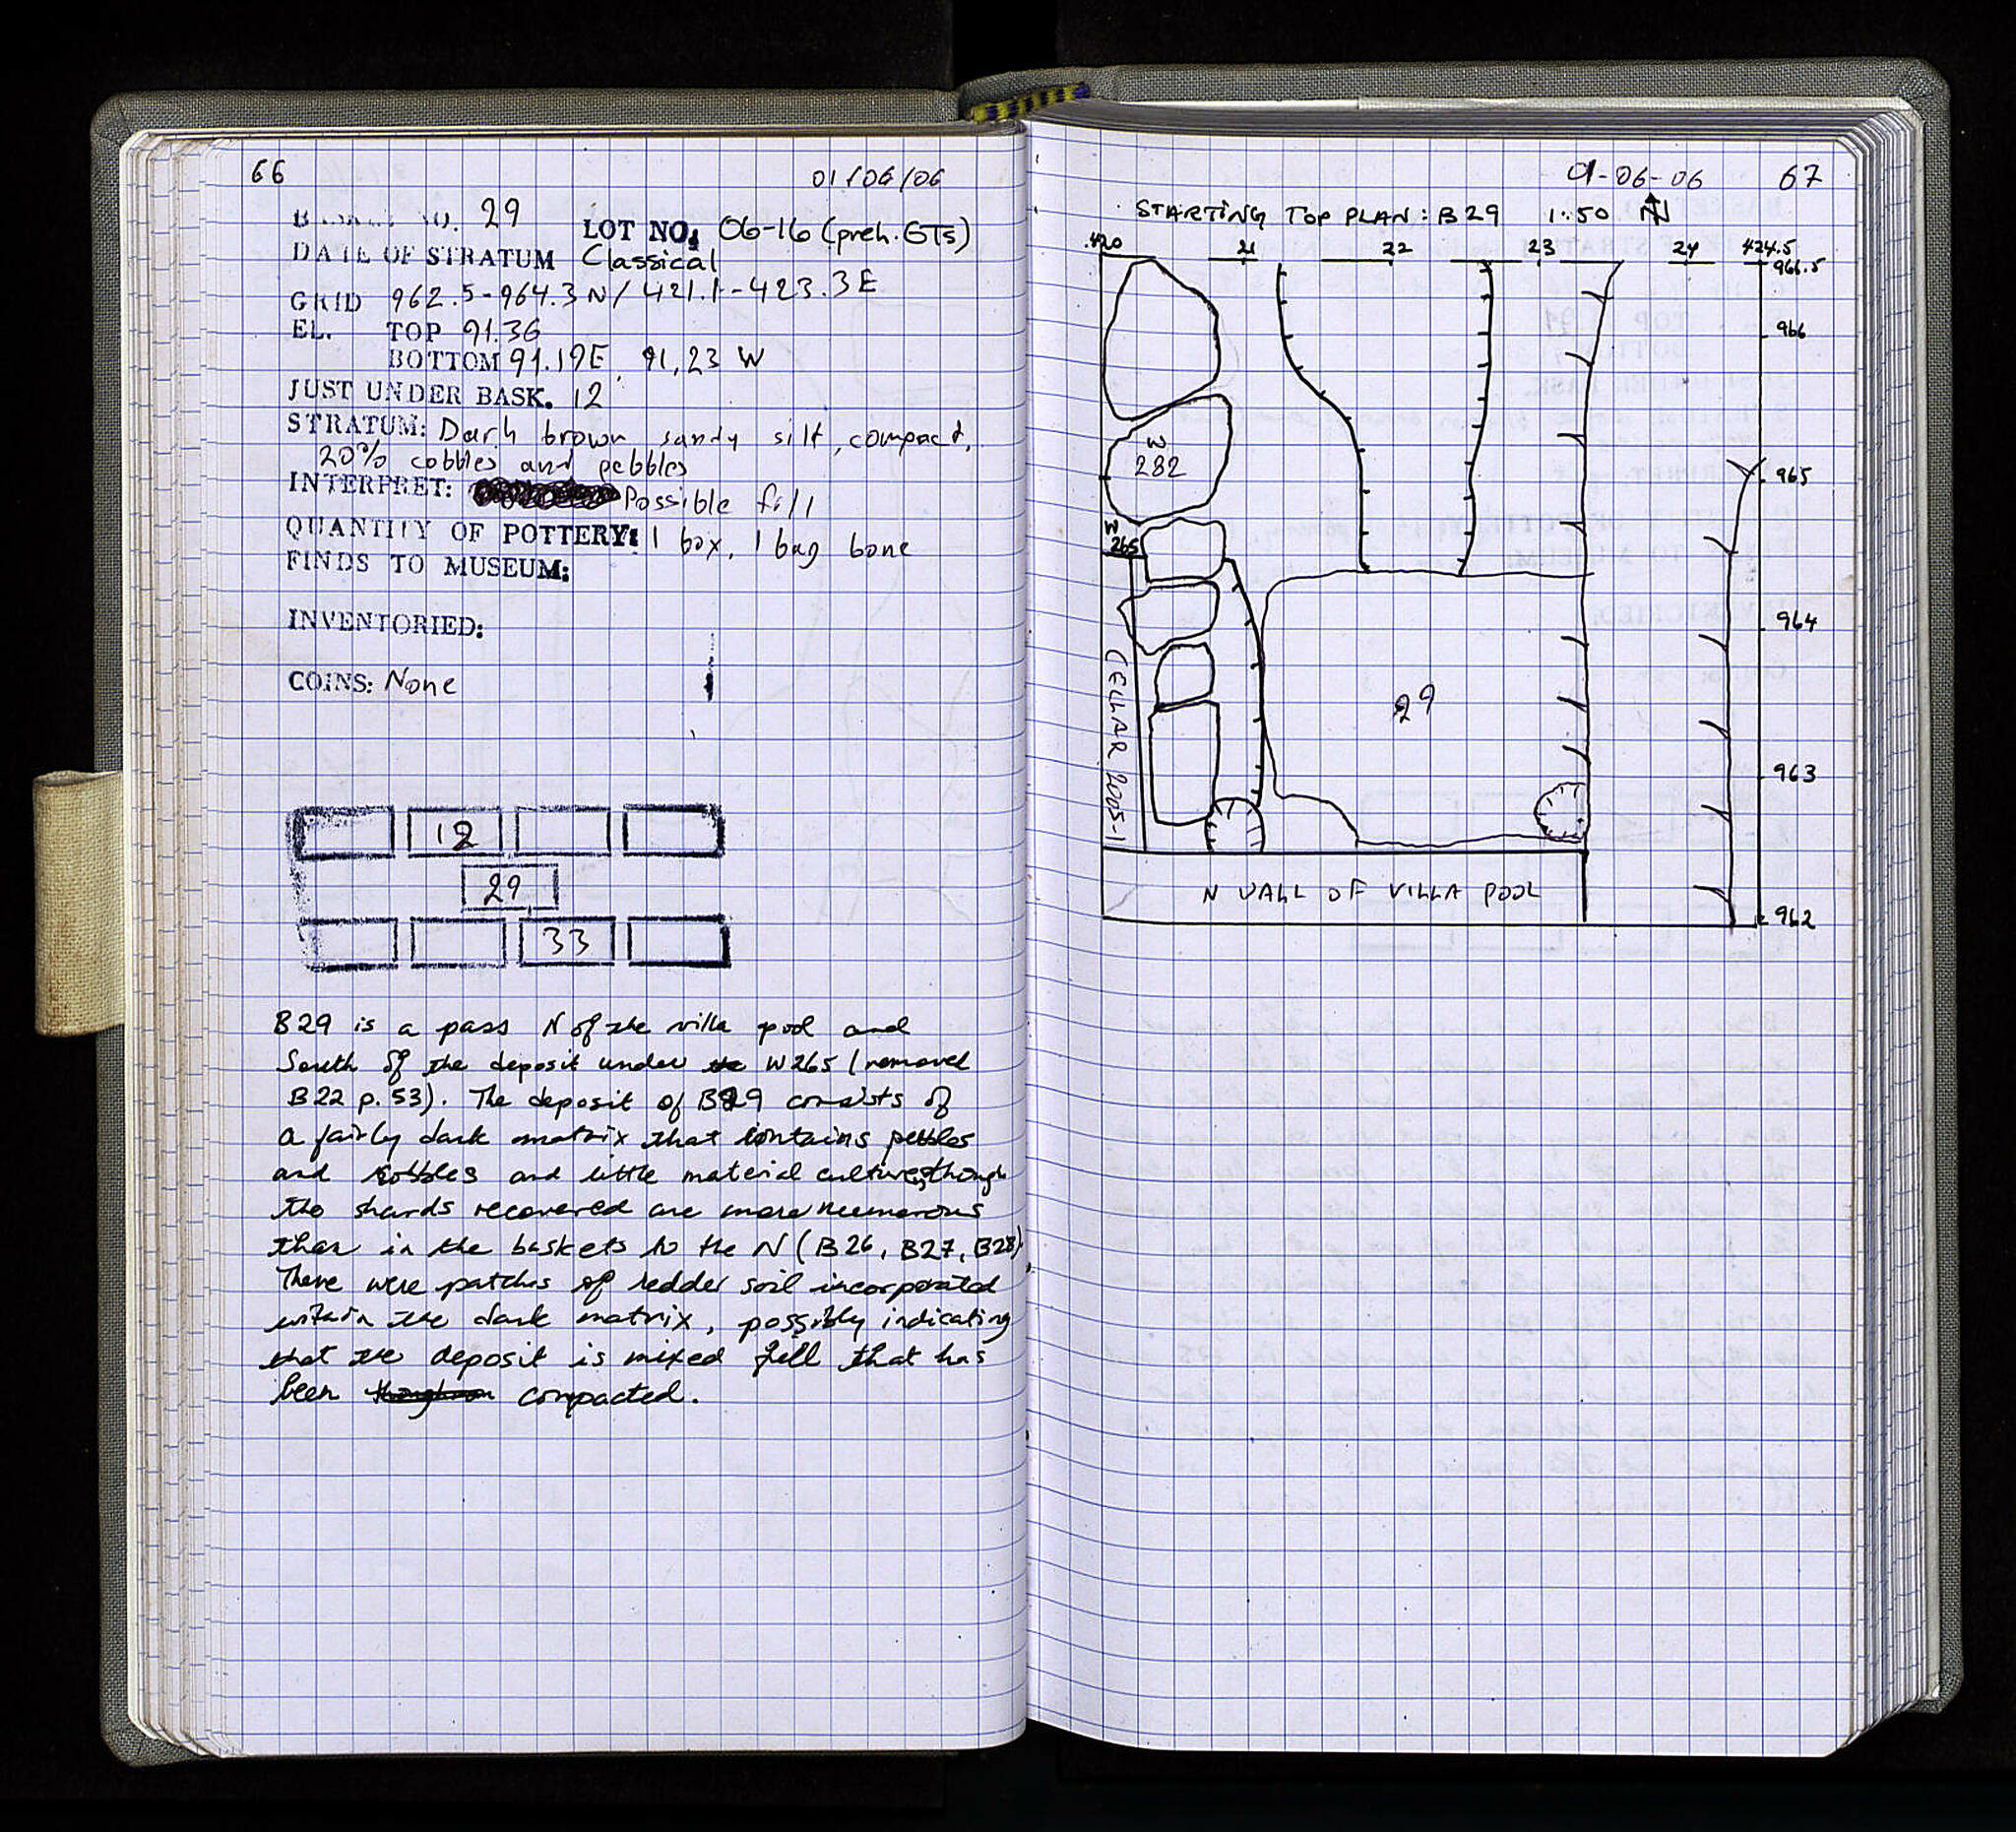 66
01/06/06
BASKET NO. 29 LOT NO. 06-16 (preh. GTs)
DATE OF STRATUM Classical
GRID 962.5-964.3 N/ 421.1-423.3 E
EL. TOP 91.36
BOTTOM 91.19E, 91,23 W
JUST UNDER BASK. 12
STRATUM: Dark brown sandy silt, compact,
20% cobbles and pebbles
INTERPRET: Possible fill
QUANTITY OF POTTERY: 1 box, 1 bag bone
FINDS TO MUSEUM:
INVENTORIED:
COINS: None
12
29
33
B29 is a pass N of the villa pool and
South of the deposit under W265 (removed
B22 p. 53). The deposit of B29 consists of
a fairly dark matrix that contains pebbles
and cobbles and little material culture, though
the shards recovered are more numerous
than in the baskets to the N (B26, B27, B28).
There were patches of redder soil incorporated
within the dark matrix, possibly indicating
that the deposit is mixed fill that has
been compacted.
01-06-06 67
STARTING TOP PLAN: B29 1:50 N
420 21 22 23 24 424.5
966.5
966
W
282
965
W
265
964
CELLAR 2005-1
29
963
N WALL OF VILLA POOL
962